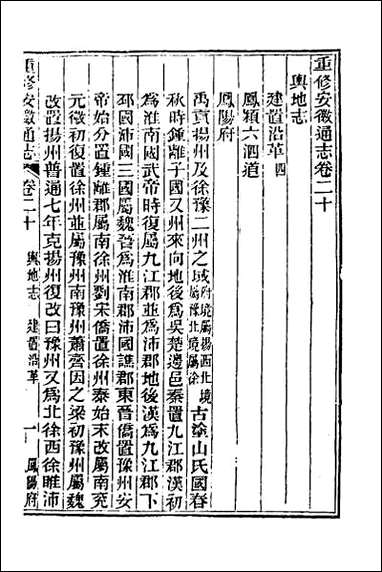 重修安徽通志卷二十
輿地志
建置沿革四
鳳潁六泗道
鳳陽府
禹貢揚州及徐豫二州之域府境屬揚西北境屬豫北境屬徐古塗山氏國春
秋時鍾離子國又州來向地後為吳楚邊邑秦置九江郡漢初
為淮南國武帝時復屬九江郡並為沛郡地後漢為九江郡下
邳國沛國三國屬魏晉為淮南郡沛國譙郡東晉僑置豫州安
帝始分置鍾離郡屬南徐州劉宋僑置徐州泰始末改屬南兗
元徽初復置徐州並屬豫州南豫州蕭齊因之梁初豫州屬魏
改置揚州普通七年克揚州復改曰豫州又為北徐西徐睢沛
重修安徽通志
卷二十
輿地志
建置沿革
一
鳳陽府